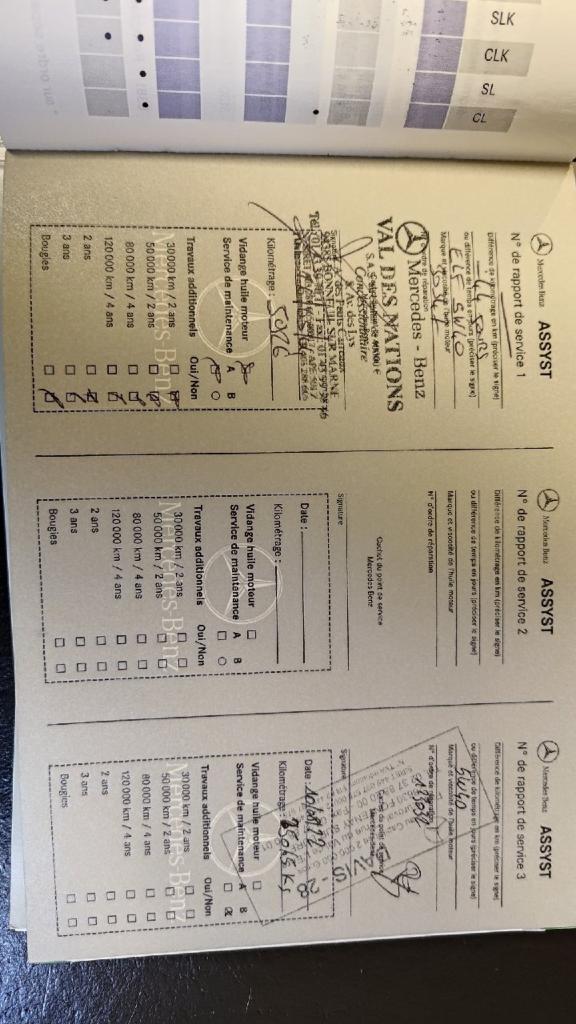 SLK
CLK
SL
CL
Mercedes-Benz ASSYST
N° de rapport de service 1
Différence de kilométrage en km (préciser le signe)
- 44 jours
ou différence de temps en jours (préciser le signe)
ELF 5W40
Marque et viscosité de l'huile moteur
N° d'ordre de réparation
Mercedes - Benz
VAL DES NATIONS
Concessionnaire
BONNEUIL SUR MARNE
Signature
Kilométrage :
Vidange huile moteur
Service de maintenance A B
Travaux additionnels Oui/Non
30 000 km / 2 ans
50 000 km / 2 ans
80 000 km / 4 ans
120 000 km / 4 ans
2 ans
3 ans
Bougies
Mercedes-Benz
Mercedes-Benz ASSYST
N° de rapport de service 2
Différence de kilométrage en km (préciser le signe)
ou différence de temps en jours (préciser le signe)
Marque et viscosité de l'huile moteur
N° d'ordre de réparation
Cachet du point de service
Mercedes Benz
Signature
Date :
Kilométrage :
Vidange huile moteur
Service de maintenance A B
Travaux additionnels Oui/Non
30 000 km / 2 ans
50 000 km / 2 ans
80 000 km / 4 ans
120 000 km / 4 ans
2 ans
3 ans
Bougies
Mercedes-Benz
Mercedes-Benz ASSYST
N° de rapport de service 3
Différence de kilométrage en km (préciser le signe)
ou différence de temps en jours (préciser le signe)
5W40
Marque et viscosité de l'huile moteur
N° d'ordre de réparation
Cachet du point de service
Signature
Date :
Kilométrage :
Vidange huile moteur
Service de maintenance A B
Travaux additionnels Oui/Non
30 000 km / 2 ans
50 000 km / 2 ans
80 000 km / 4 ans
120 000 km / 4 ans
2 ans
3 ans
Bougies
Mercedes-Benz